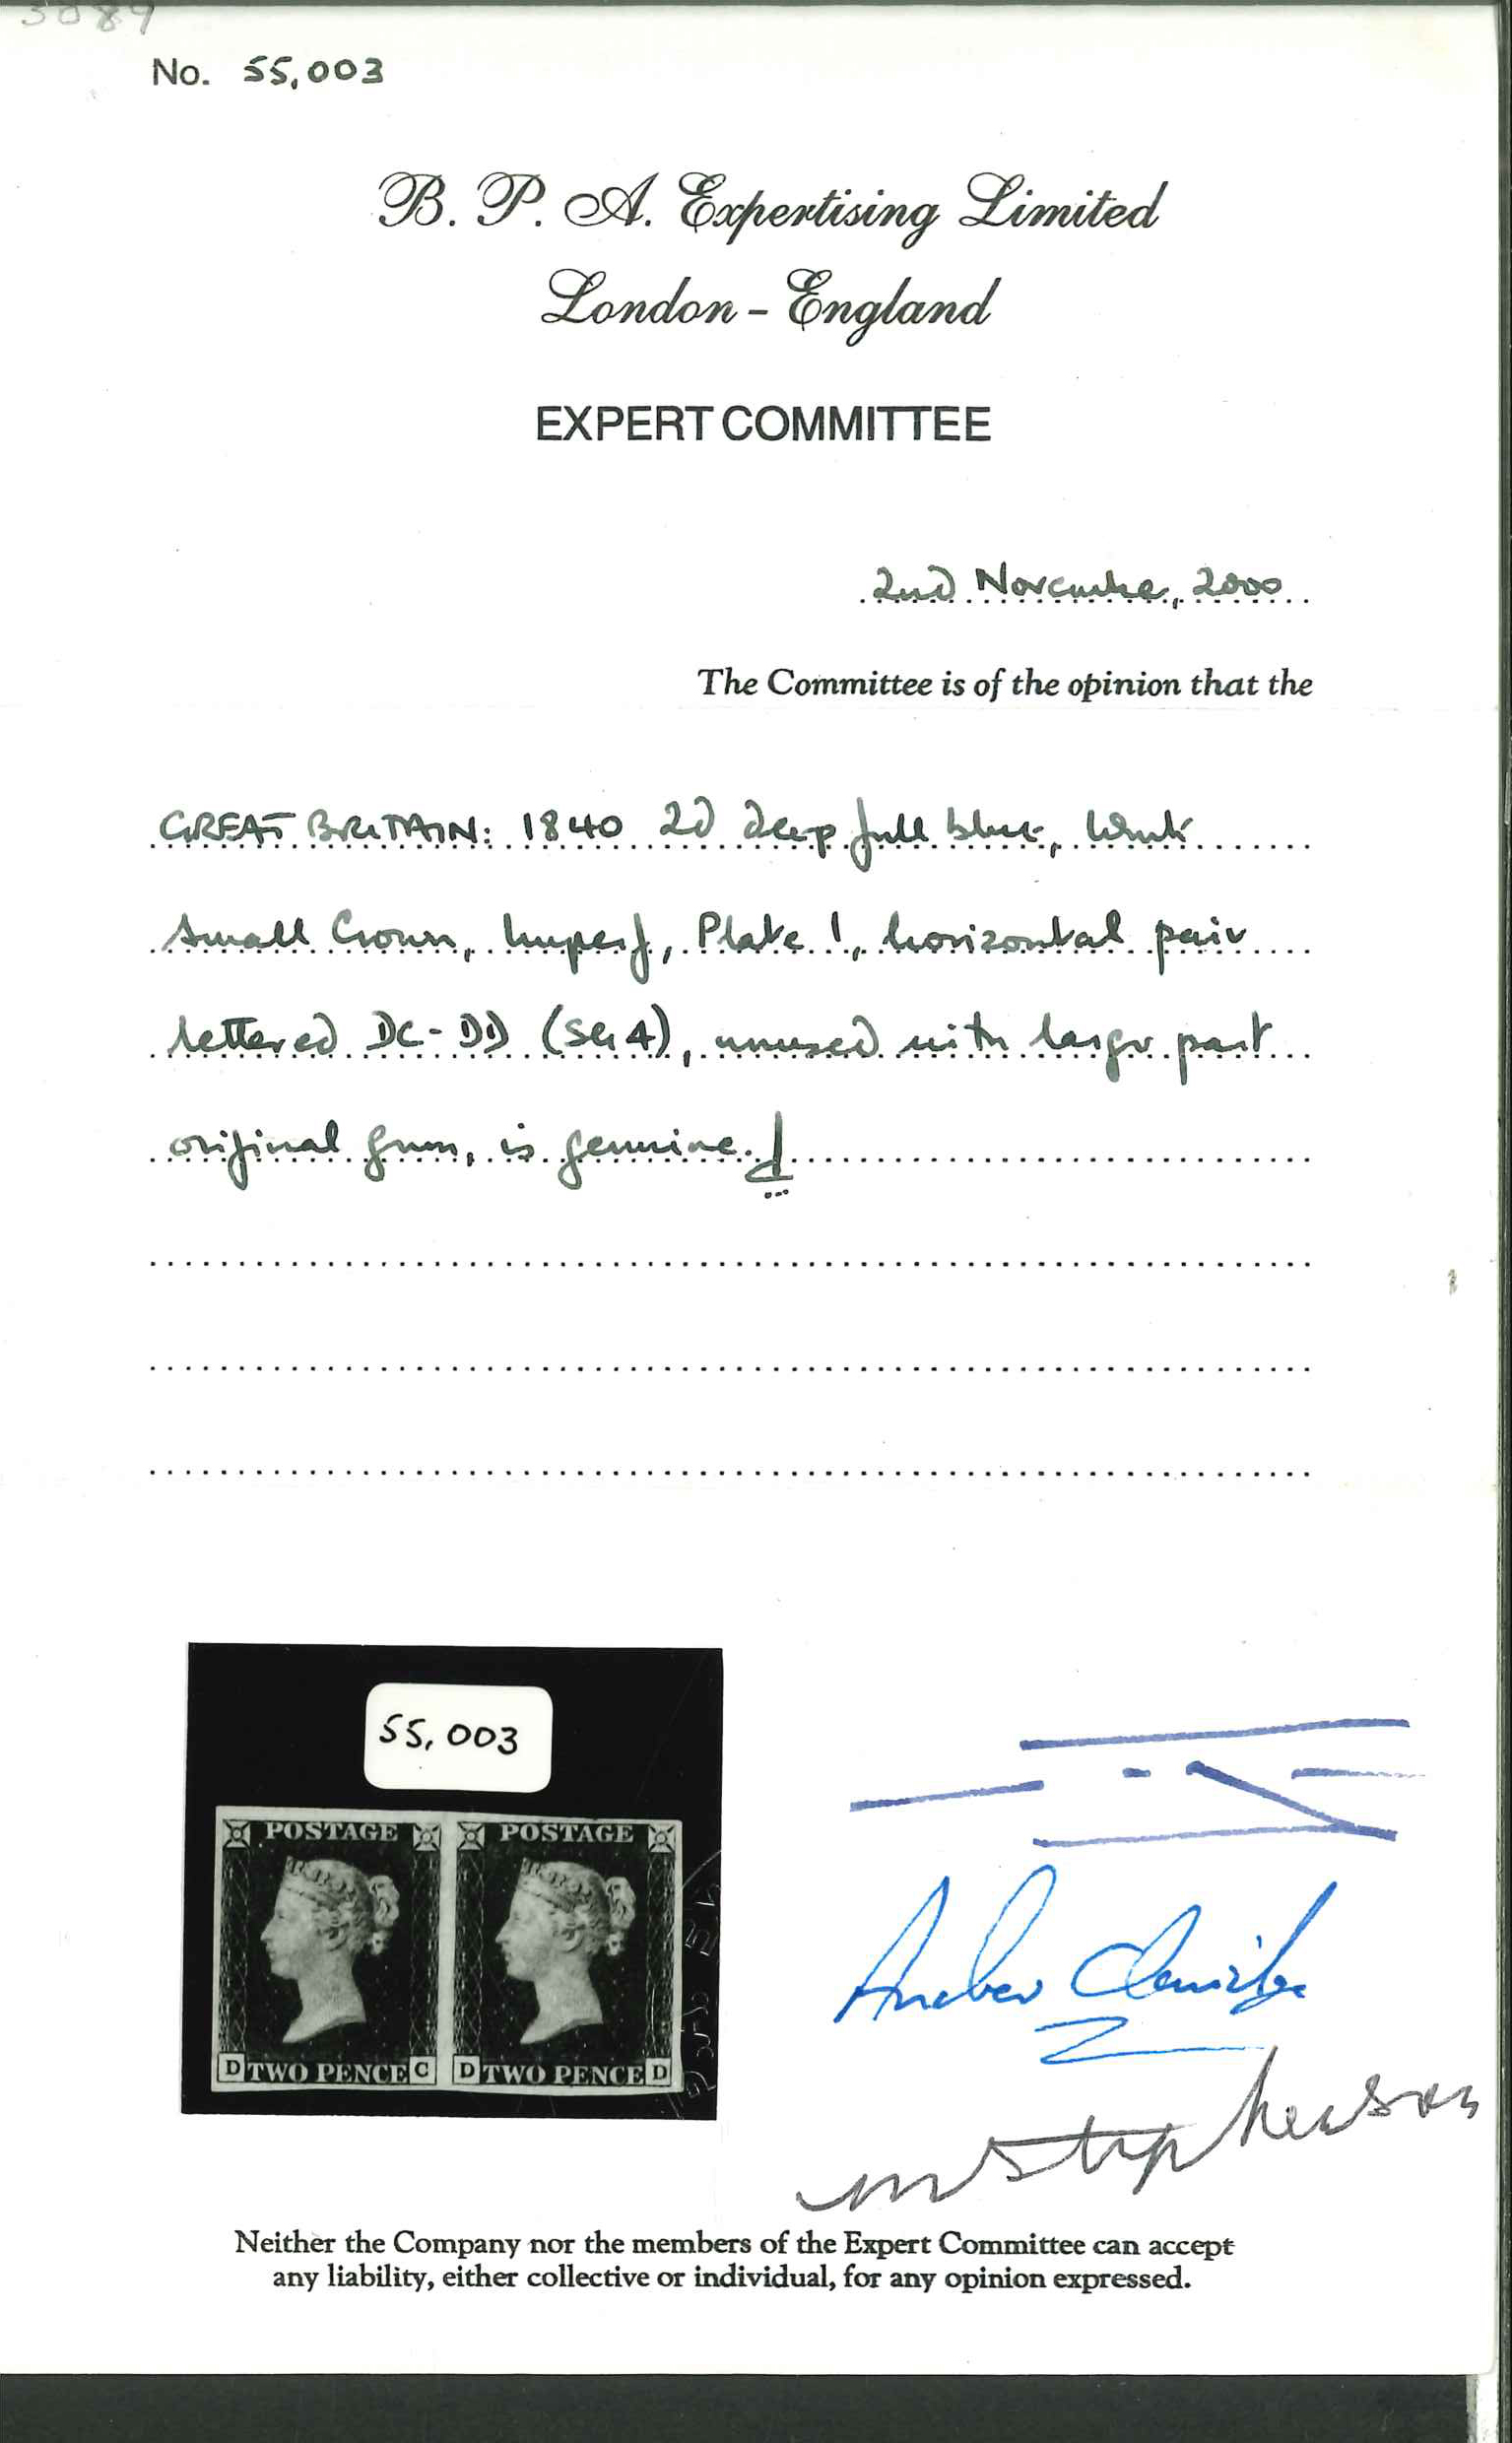 3089
No. 55,003
B. P. A. Expertising Limited
London - England
EXPERT COMMITTEE
2nd November, 2000
The Committee is of the opinion that the
GREAT BRITAIN: 1840 2d deep full blue, Wmk
Small Crown, Imperf, Plate 1, horizontal pair
lettered DC-DD (SG 4), unused with large part
original gum, is genuine.
55,003
POSTAGE POSTAGE
D TWO PENCE C D TWO PENCE D
Neither the Company nor the members of the Expert Committee can accept
any liability, either collective or individual, for any opinion expressed.